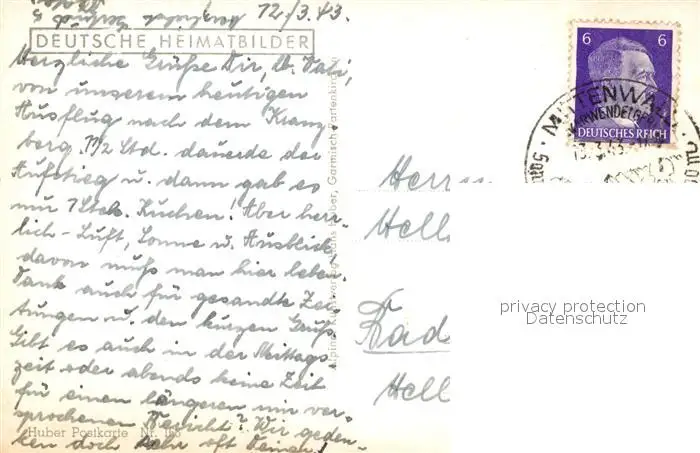 12./3.43.
DEUTSCHE HEIMATBILDER
Herzliche Grüße Dir, lb. Vati,
von unserem heutigen
Ausflug nach dem Kranz
berg. 1½ Std. dauerte der
Aufstieg u. dann gab es
nur 1 Stck. Kuchen! Aber herr-
lich – Luft, Sonne u. Ausblick
davon muß man hier leben.
Dank auch für gesandte Zei-
tungen u. den kurzen Gruß.
Gibt es auch in der Mittags
zeit oder abends keine Zeit
für einen längeren mir ver-
sprochenen Bericht? Wir geden-
ken doch sehr oft Deiner!
Huber Postkarte Nr.
Garmisch-Partenkirchen
6 6
DEUTSCHES REICH
MITTENWALD
KARWENDELGEBIET
13.3.43
Herrn
Hell
Rad
Hell
privacy protection
Datenschutz